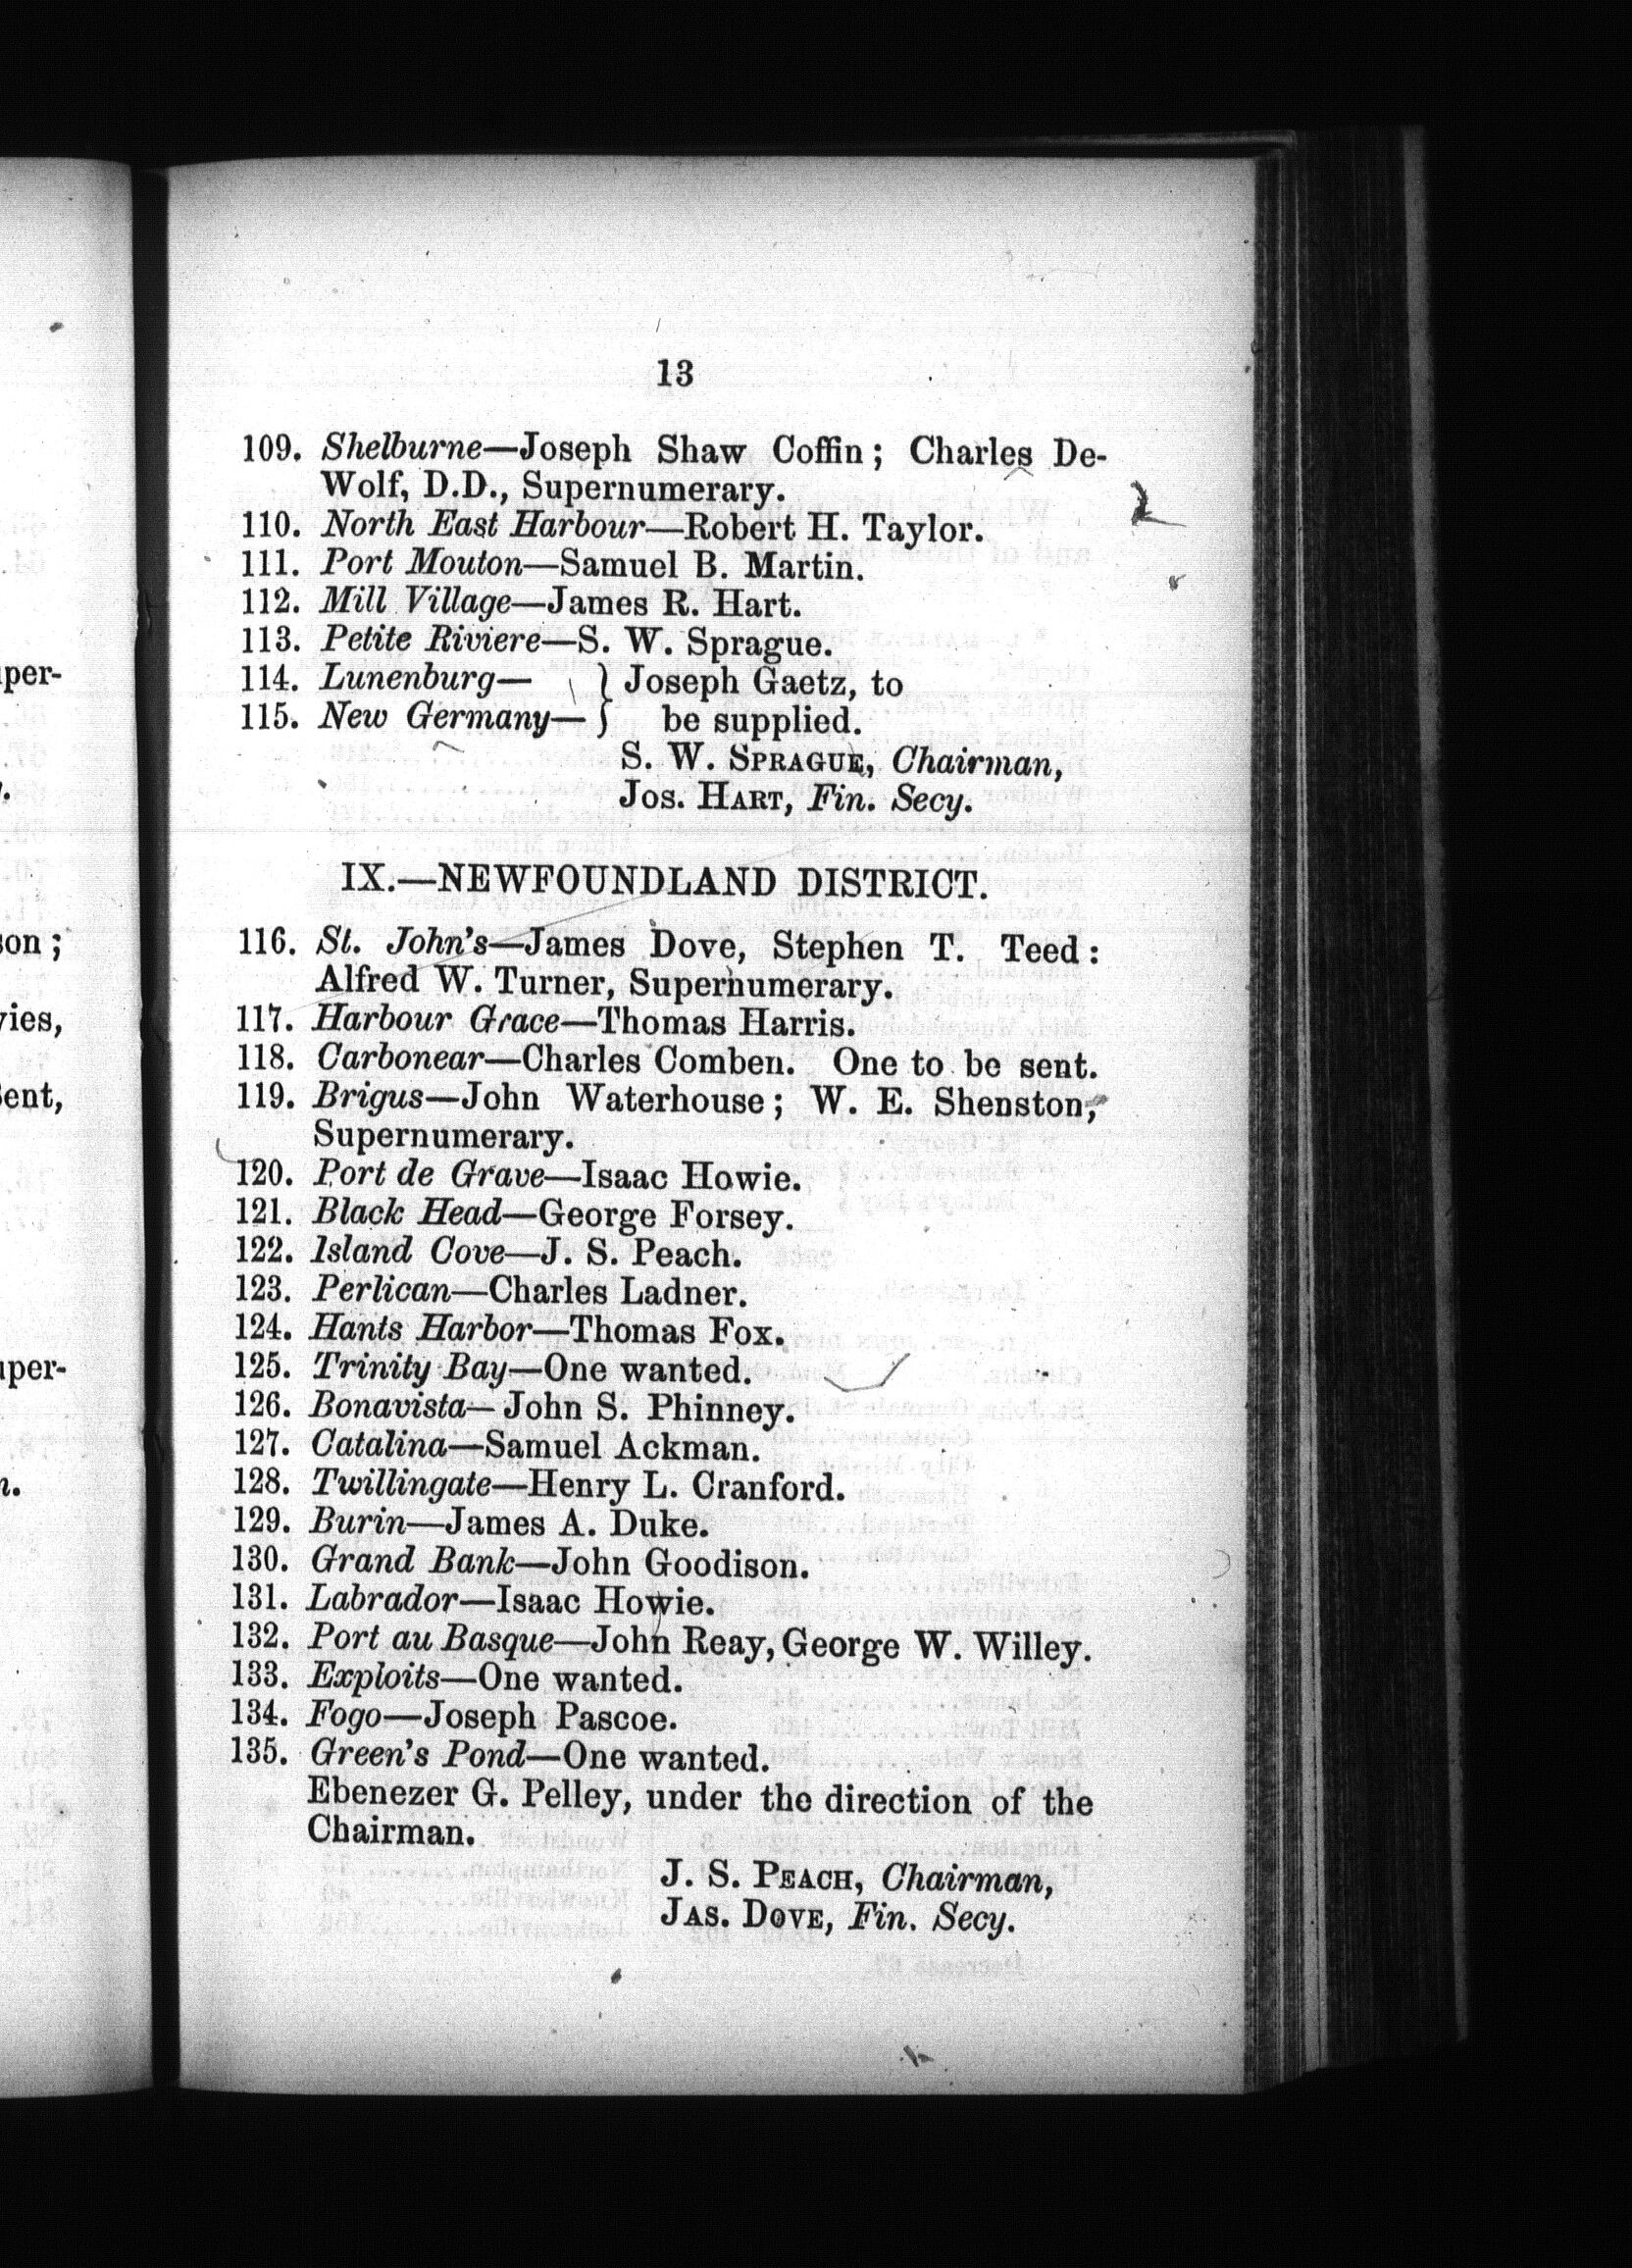 13
109. Shelburne—Joseph Shaw Coffin; Charles De-
Wolf, D.D., Supernumerary.
110. North East Harbour—Robert H. Taylor.
111. Port Mouton—Samuel B. Martin.
112. Mill Village—James R. Hart.
113. Petite Riviere—S. W. Sprague.
114. Lunenburg— } Joseph Gaetz, to
115. New Germany— } be supplied.
S. W. SPRAGUE, Chairman,
JOS. HART, Fin. Secy.
IX.—NEWFOUNDLAND DISTRICT.
116. St. John's—James Dove, Stephen T. Teed:
Alfred W. Turner, Supernumerary.
117. Harbour Grace—Thomas Harris.
118. Carbonear—Charles Comben. One to be sent.
119. Brigus—John Waterhouse; W. E. Shenston,
Supernumerary.
120. Port de Grave—Isaac Howie.
121. Black Head—George Forsey.
122. Island Cove—J. S. Peach.
123. Perlican—Charles Ladner.
124. Hants Harbor—Thomas Fox.
125. Trinity Bay—One wanted.
126. Bonavista—John S. Phinney.
127. Catalina—Samuel Ackman.
128. Twillingate—Henry L. Cranford.
129. Burin—James A. Duke.
130. Grand Bank—John Goodison.
131. Labrador—Isaac Howie.
132. Port au Basque—John Reay, George W. Willey.
133. Exploits—One wanted.
134. Fogo—Joseph Pascoe.
135. Green's Pond—One wanted.
Ebenezer G. Pelley, under the direction of the
Chairman.
J. S. PEACH, Chairman,
JAS. DOVE, Fin. Secy.